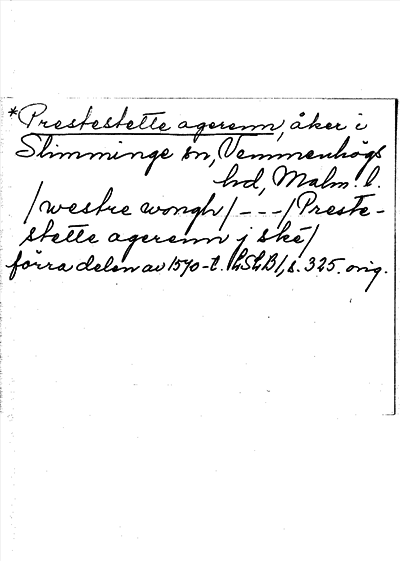 *Prestestette agerenn, åker i
Slimminge sn, Vemmenhögs
hd, Malm. l.
/westre wongh/ - - - /Preste-
stette agerenn j ské/
förra delen av 1570-t. LSLB1, s. 325. orig.